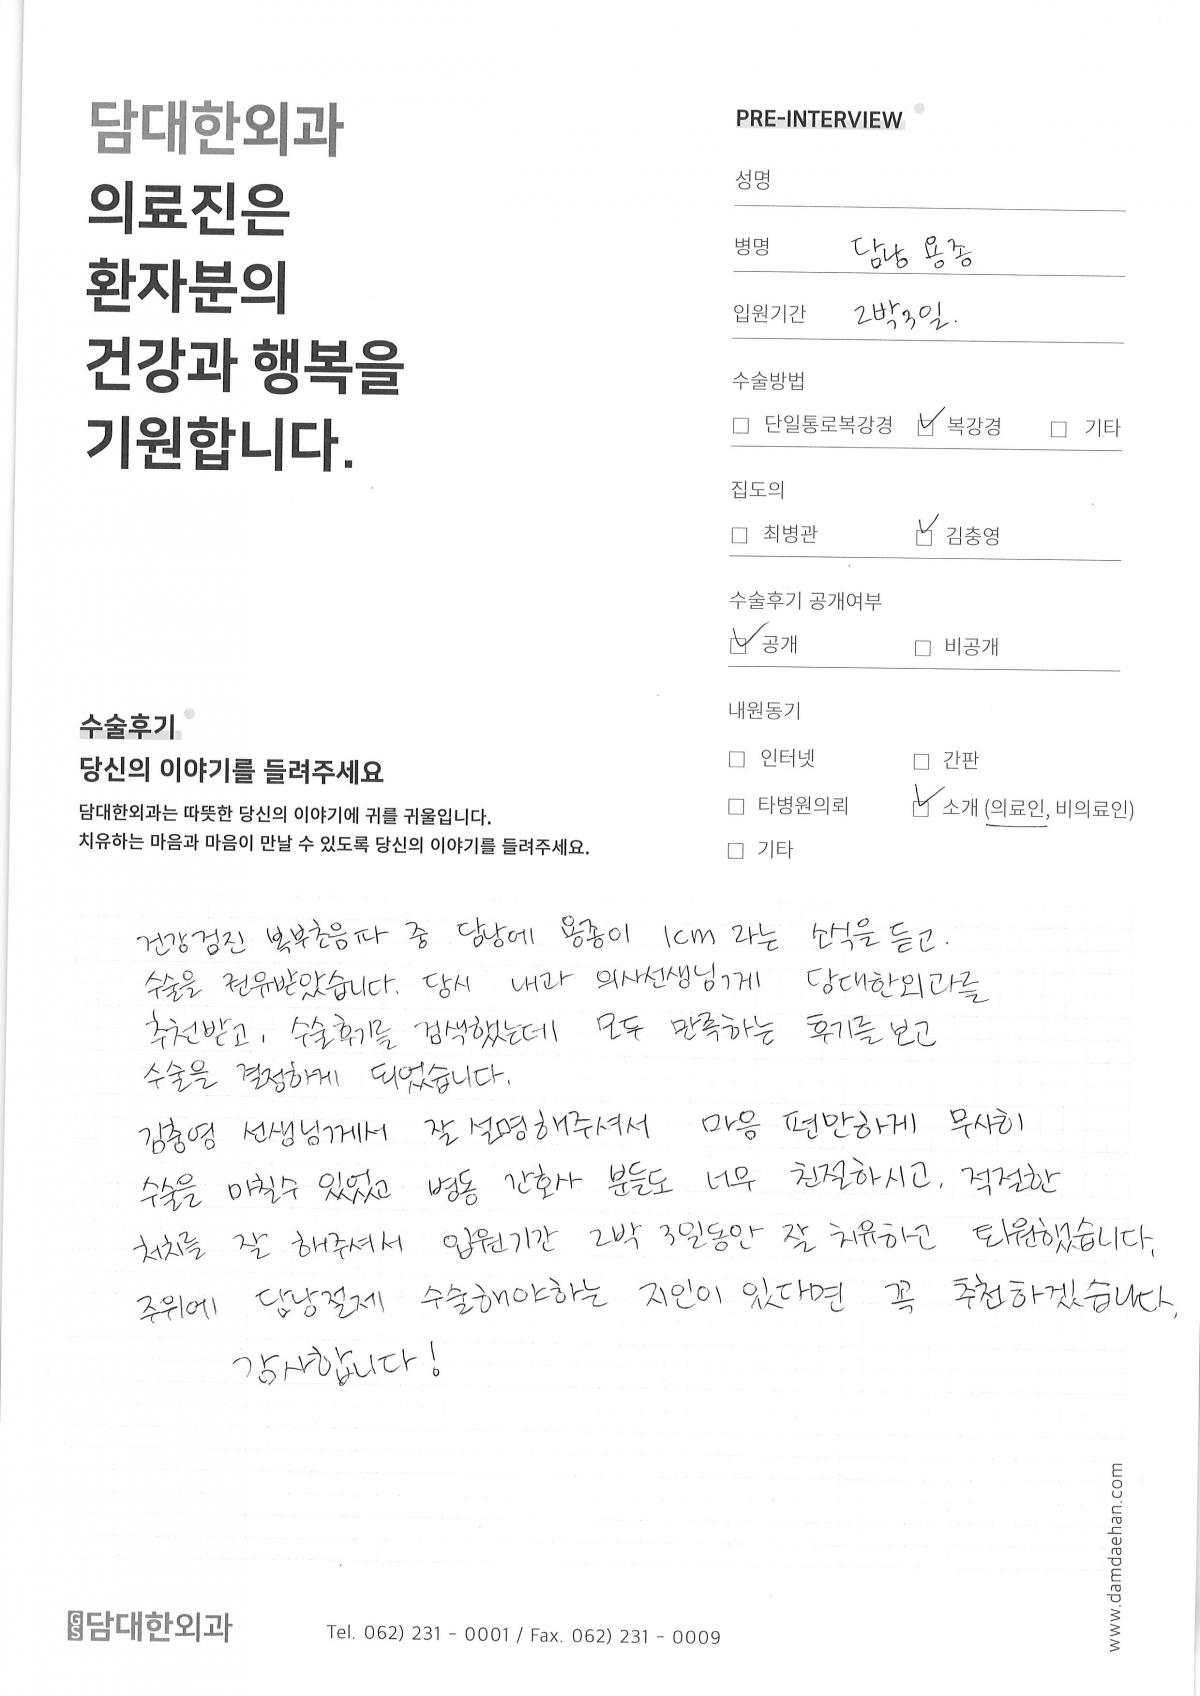 담대한외과
의료진은
환자분의
건강과 행복을
기원합니다.
PRE-INTERVIEW
성명
병명 담낭 용종
입원기간 2박3일.
수술방법
□ 단일통로복강경 ☑ 복강경 □ 기타
집도의
□ 최병관 ☑ 김충영
수술후기 공개여부
☑ 공개 □ 비공개
내원동기
□ 인터넷 □ 간판
□ 타병원의뢰 ☑ 소개 (의료인, 비의료인)
□ 기타
수술후기
당신의 이야기를 들려주세요
담대한외과는 따뜻한 당신의 이야기에 귀를 귀울입니다.
치유하는 마음과 마음이 만날 수 있도록 당신의 이야기를 들려주세요.
건강검진 복부초음파 중 담낭에 용종이 1cm 라는 소식을 듣고.
수술을 전유받았습니다. 당시 내과 의사선생님께 담대한외과를
추천받고, 수술후기를 검색했는데 모두 만족하는 후기를 보고
수술을 결정하게 되었습니다.
김충영 선생님께서 잘 설명해주셔서 마음 편안하게 무사히
수술을 마칠수 있었고 병동 간호사 분들도 너무 친절하시고, 적절한
처치를 잘 해주셔서 입원기간 2박 3일동안 잘 치유하고 퇴원했습니다.
주위에 담낭절제 수술해야하는 지인이 있다면 꼭 추천하겠습니다.
감사합니다!
GS 담대한외과
Tel. 062) 231 - 0001 / Fax. 062) 231 - 0009
www.damdaehan.com